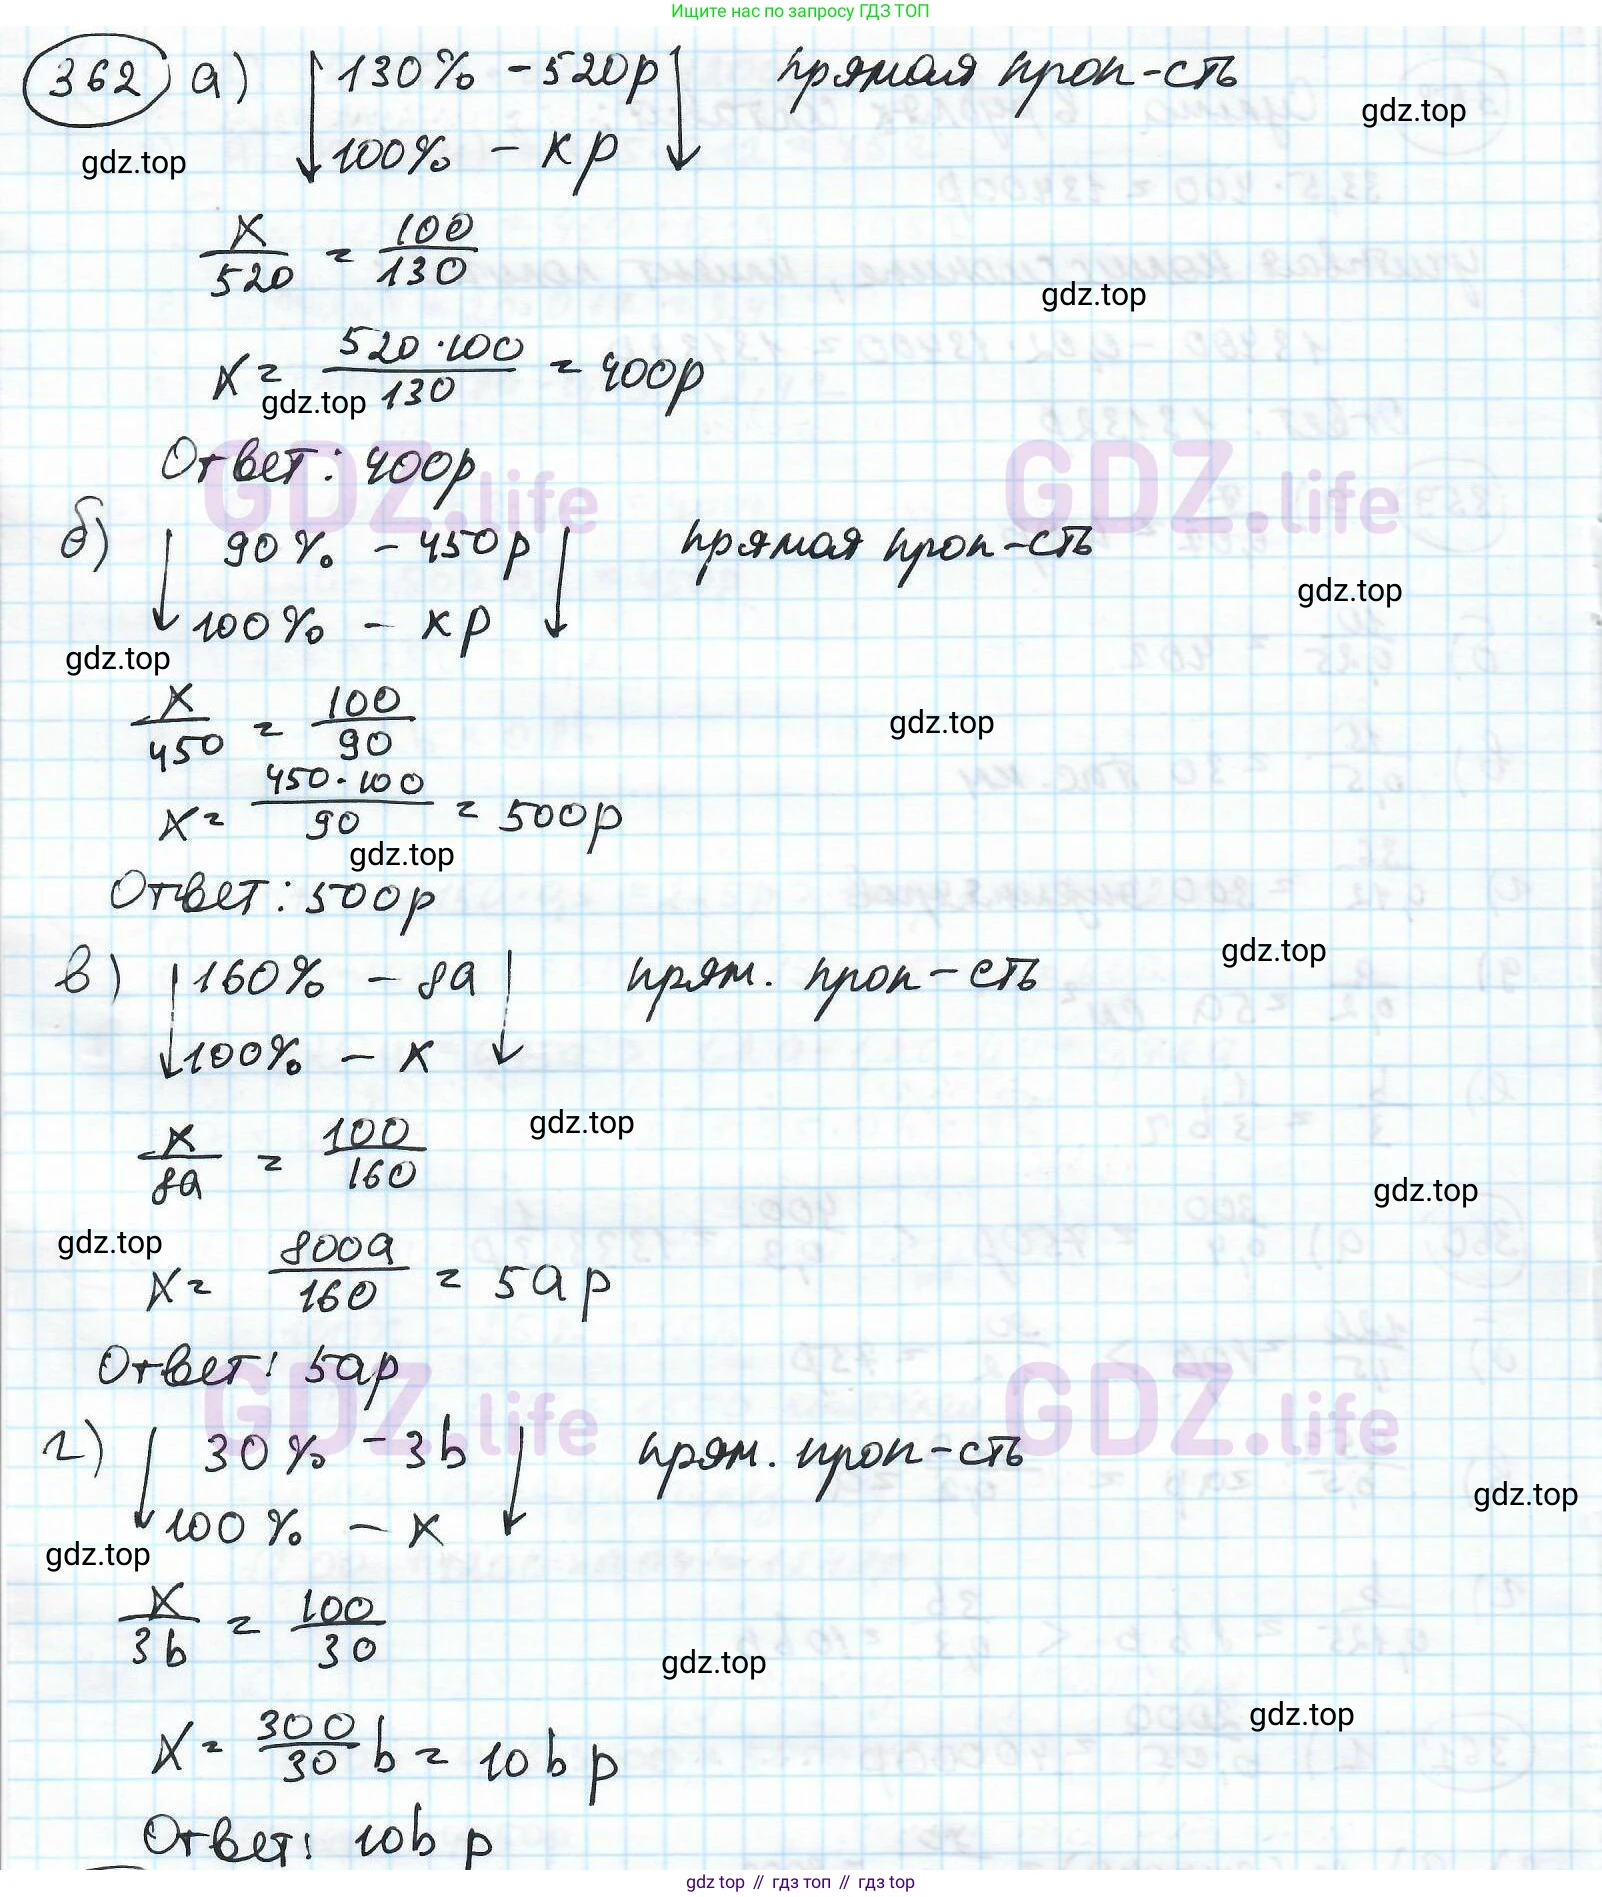 Ищите нас по запросу ГДЗ ТОП
362 а) 130% - 520р прямая проп-сть
gdz.top
100% - х р
gdz.top
x/520 = 100/130
gdz.top
x = 520·100/130 = 400р
gdz.top
Ответ: 400р
GDZ.life GDZ.life
б) 90% - 450р прямая проп-сть
gdz.top
100% - х р
gdz.top
x/450 = 100/90
gdz.top
x = 450·100/90 = 500р
gdz.top
Ответ: 500р
в) 160% - 8a прям. проп-сть
gdz.top
100% - x
x/8a = 100/160
gdz.top
gdz.top
gdz.top
x = 800a/160 = 5a р
Ответ: 5ap
GDZ.life GDZ.life
г) 30% - 3b прям. проп-сть
gdz.top
100% - x
gdz.top
x/3b = 100/30
gdz.top
gdz.top
x = 300/30 b = 10b р
Ответ: 10b р
gdz top // гдз топ // гдз top